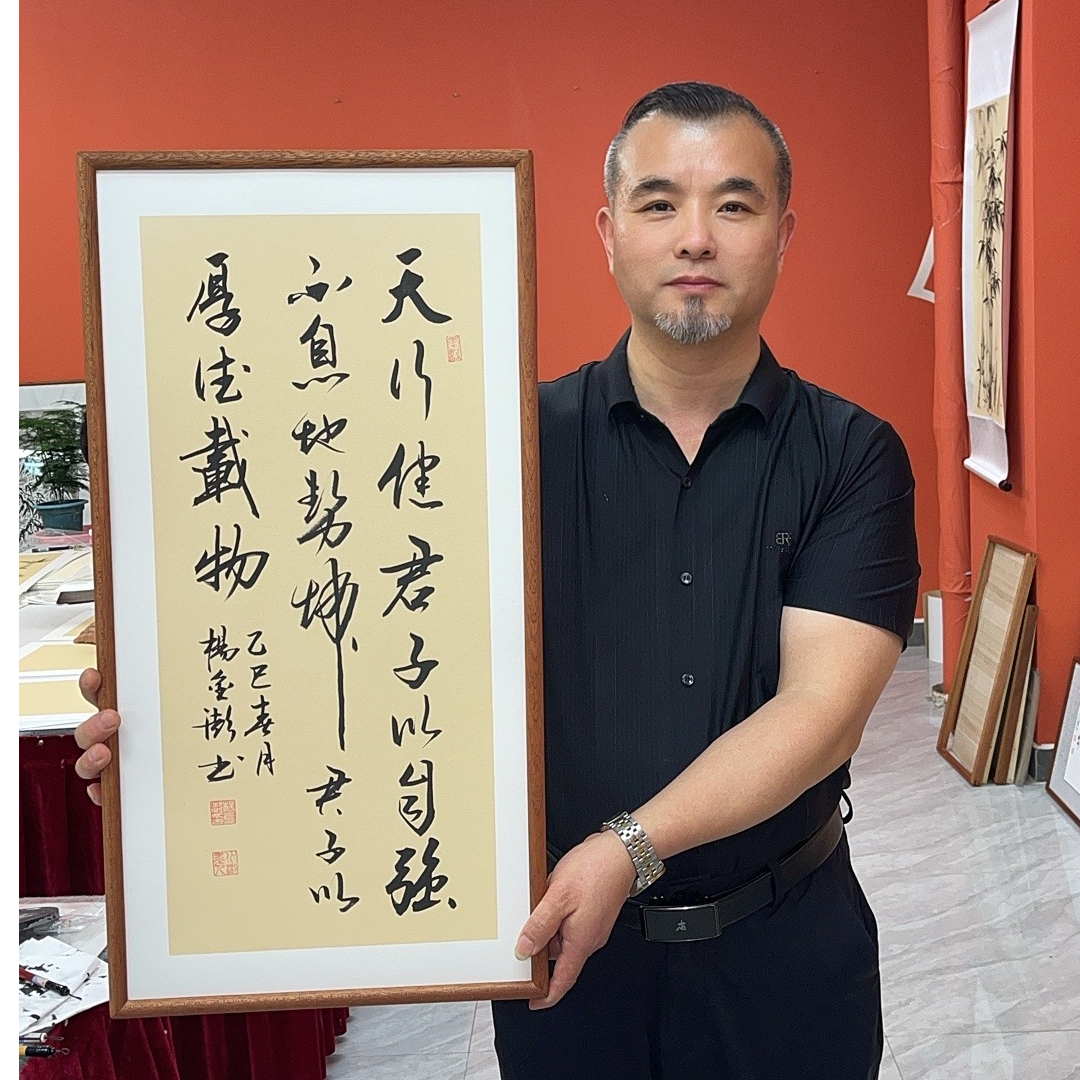 天行健君子以自强
不息地势坤君子以
厚德載物
乙巳春月
楊金澍书